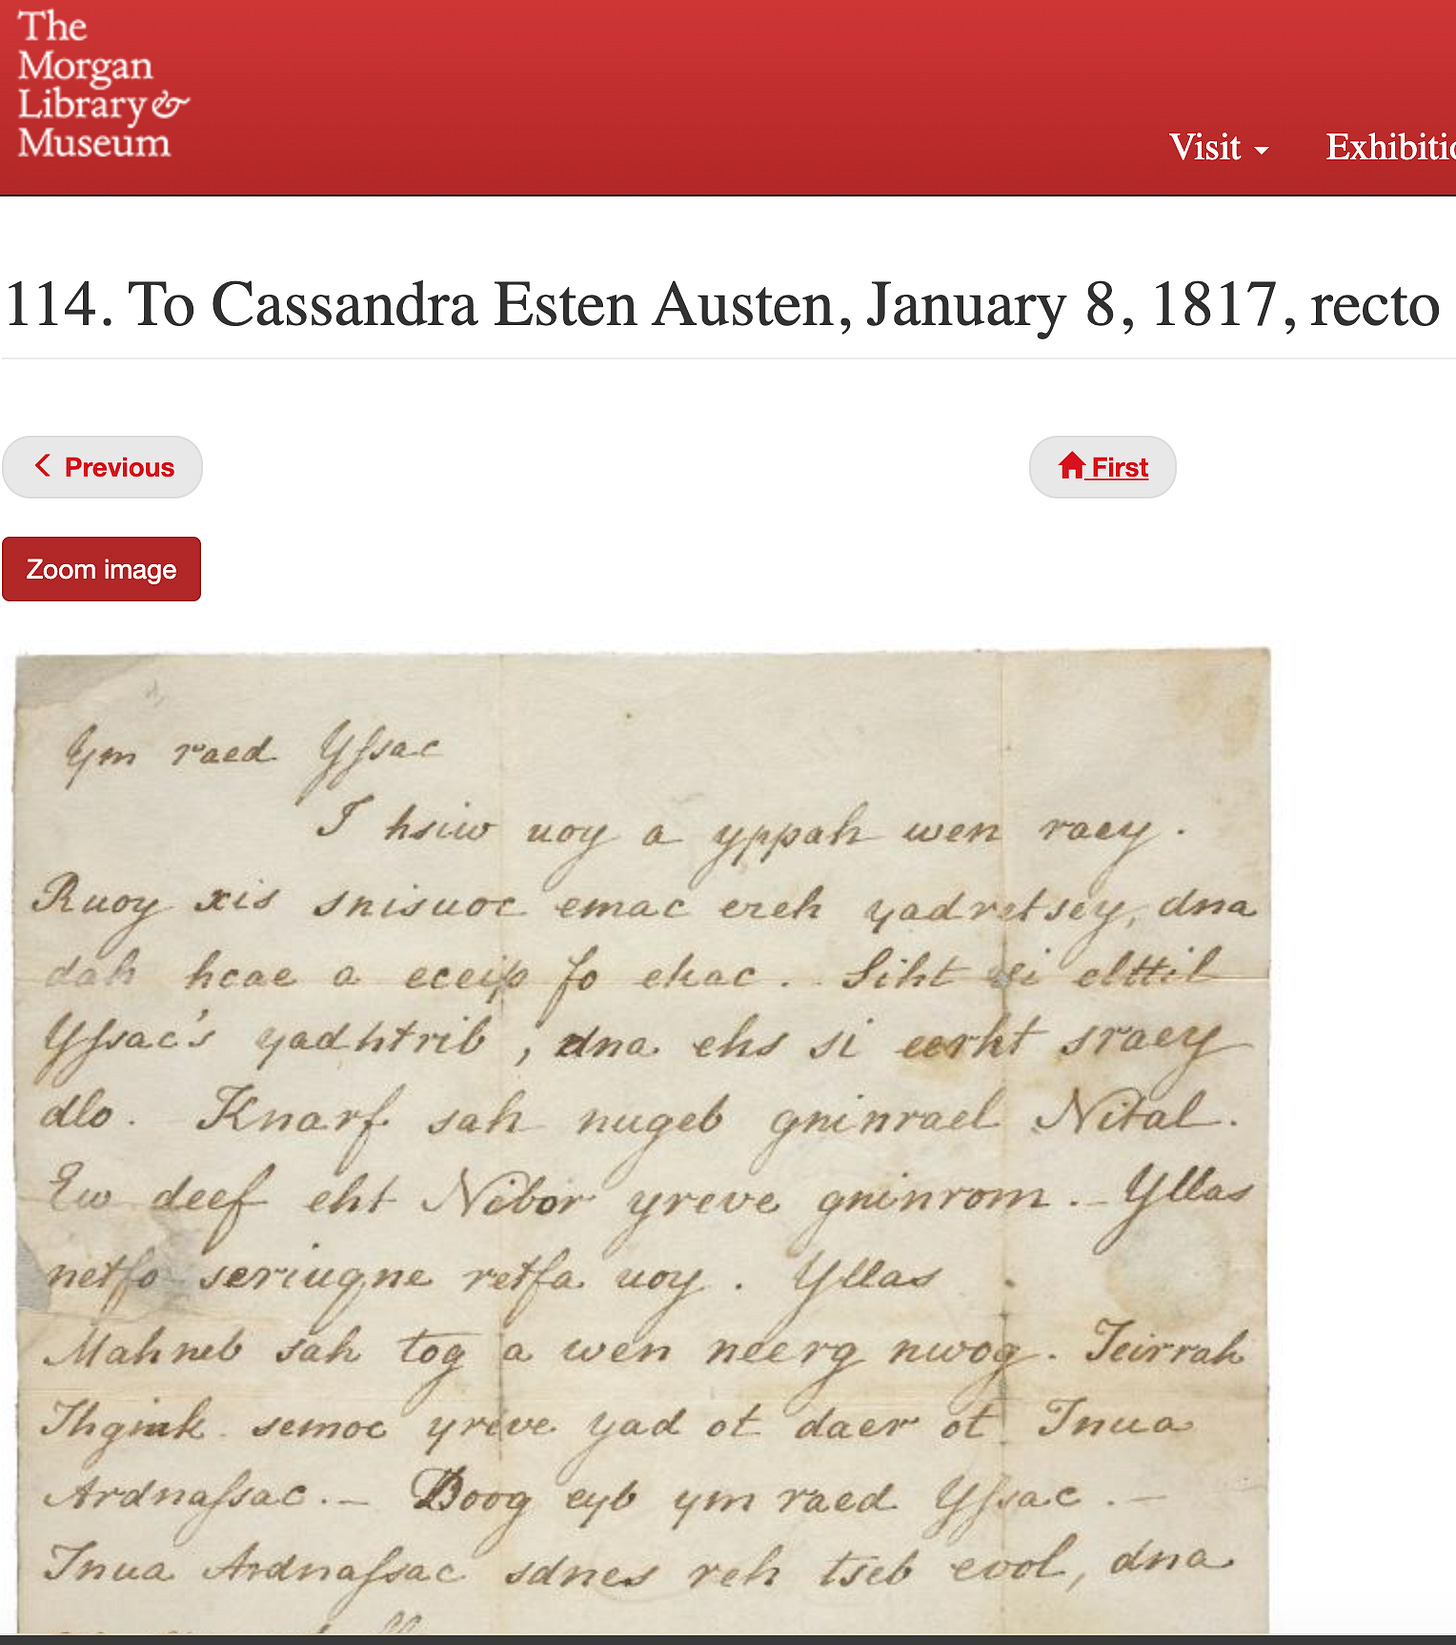 The
Morgan
Library &
Museum
Visit
Exhibitio
114. To Cassandra Esten Austen, January 8, 1817, recto
Previous
First
Zoom image
Ym raed Yſsac
I hsiw uoy a yppah wen raey.
Ruoy xis snisuoc emac ereh yadretsey, dna
dah hcae a eceip fo ekac. Siht si elttil
Yſsac's yadhtrib, dna ehs si eerht sraey
dlo. Knarf sah nugeb gninrael Nital.
Ew deef eht Nibor yreve gninrom.– Yllas
netfo seriuqne retfa uoy. Yllas
Mahneb sah tog a wen neerg nwog. Teirrah
Thgink semoc yreve yad ot daer ot Tnua
Ardnaſsac.– Doog eyb ym raed Yſsac.–
Tnua Ardnaſsac sdnes reh tseb evol, dna